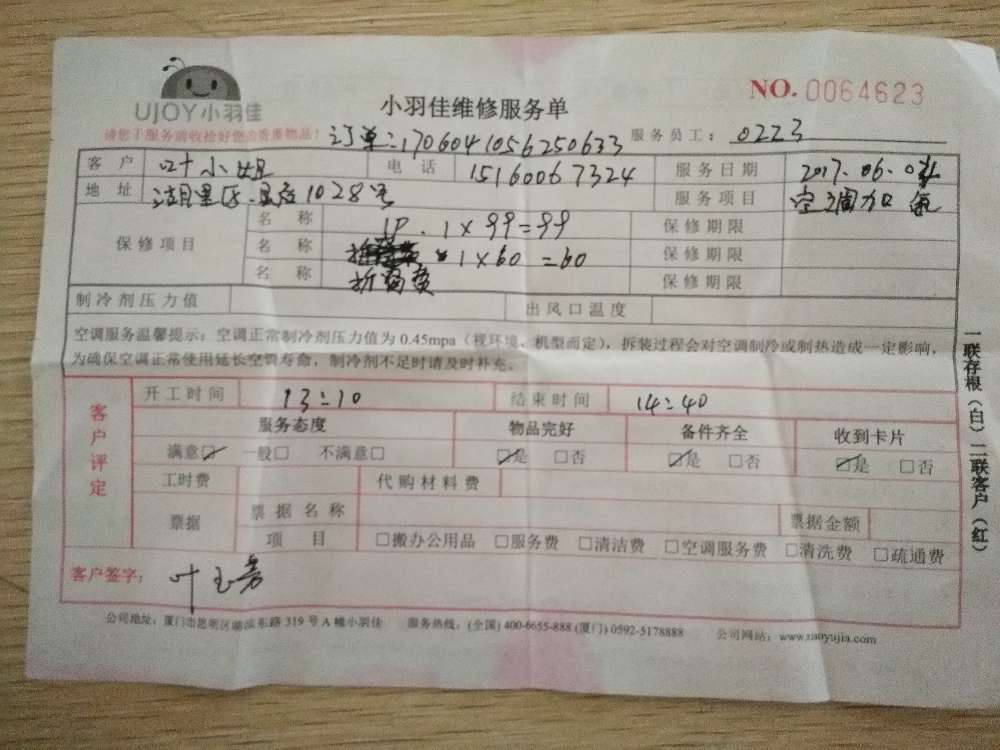 UJOY小羽佳
小羽佳维修服务单
NO. 0064623
请您于服务前收检好您的贵重物品!
订单:1706041056250633
服务员工: 0223
客 户 叶小姐 电 话 15160067324 服务日期 2017.06.0
地 址 湖里区 1028号 服务项目 空调加氟
保修项目
名 称 1P.1×99=99 保修期限
名 称 1×60=60 保修期限
名 称 折弯费 保修期限
制冷剂压力值 出风口温度
空调服务温馨提示:空调正常制冷剂压力值为 0.45mpa(视环境、机型而定),拆装过程会对空调制冷或制热造成一定影响,
为确保空调正常使用延长空调寿命,制冷剂不足时请及时补充。
客户评定
开工时间 13:10 结束时间 14:40
服务态度 物品完好 备件齐全 收到卡片
满意☑ 一般□ 不满意□ ☑是 □否 ☑是 □否 ☑是 □否
工时费 代购材料费
票据 票据名称 票据金额
项 目 □搬办公用品 □服务费 □清洁费 □空调服务费 □清洗费 □疏通费
客户签字: 叶玉芳
公司地址:厦门市思明区湖滨东路 319 号 A 幢小羽佳 服务热线:(全国) 400-6655-888 (厦门) 0592-5178888 公司网站:www.xiaoyujia.com
一联存根(白)二联客户(红)